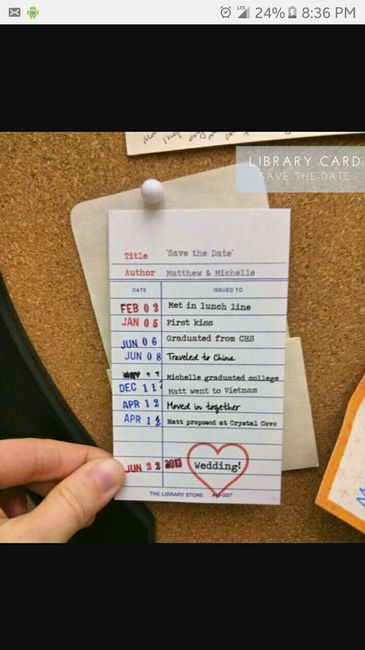 24% 8:36 PM
LIBRARY CARD
SAVE THE DATE
Title 'Save the Date'
Author Matthew & Michelle
DATE ISSUED TO
FEB 02 Met in lunch line
JAN 05 First kiss
JUN 06 Graduated from CHS
JUN 08 Traveled to China
Michelle graduated college
DEC 11 Matt went to Vietnam
APR 12 Moved in together
APR 12 Matt proposed at Crystal Cove
JUN 22 2013 Wedding!
THE LIBRARY STORE